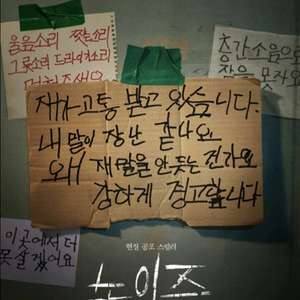 울음소리
그릇소리
층간소음으로
잠을 못자요
재가고통 받고 있습니다.
내 말이 장난 같나요
왜 재말을 안듣는 건가요
강하게 경고합니다
이 곳에서 더
못 살겠어요
현실 공포 스릴러
노이즈